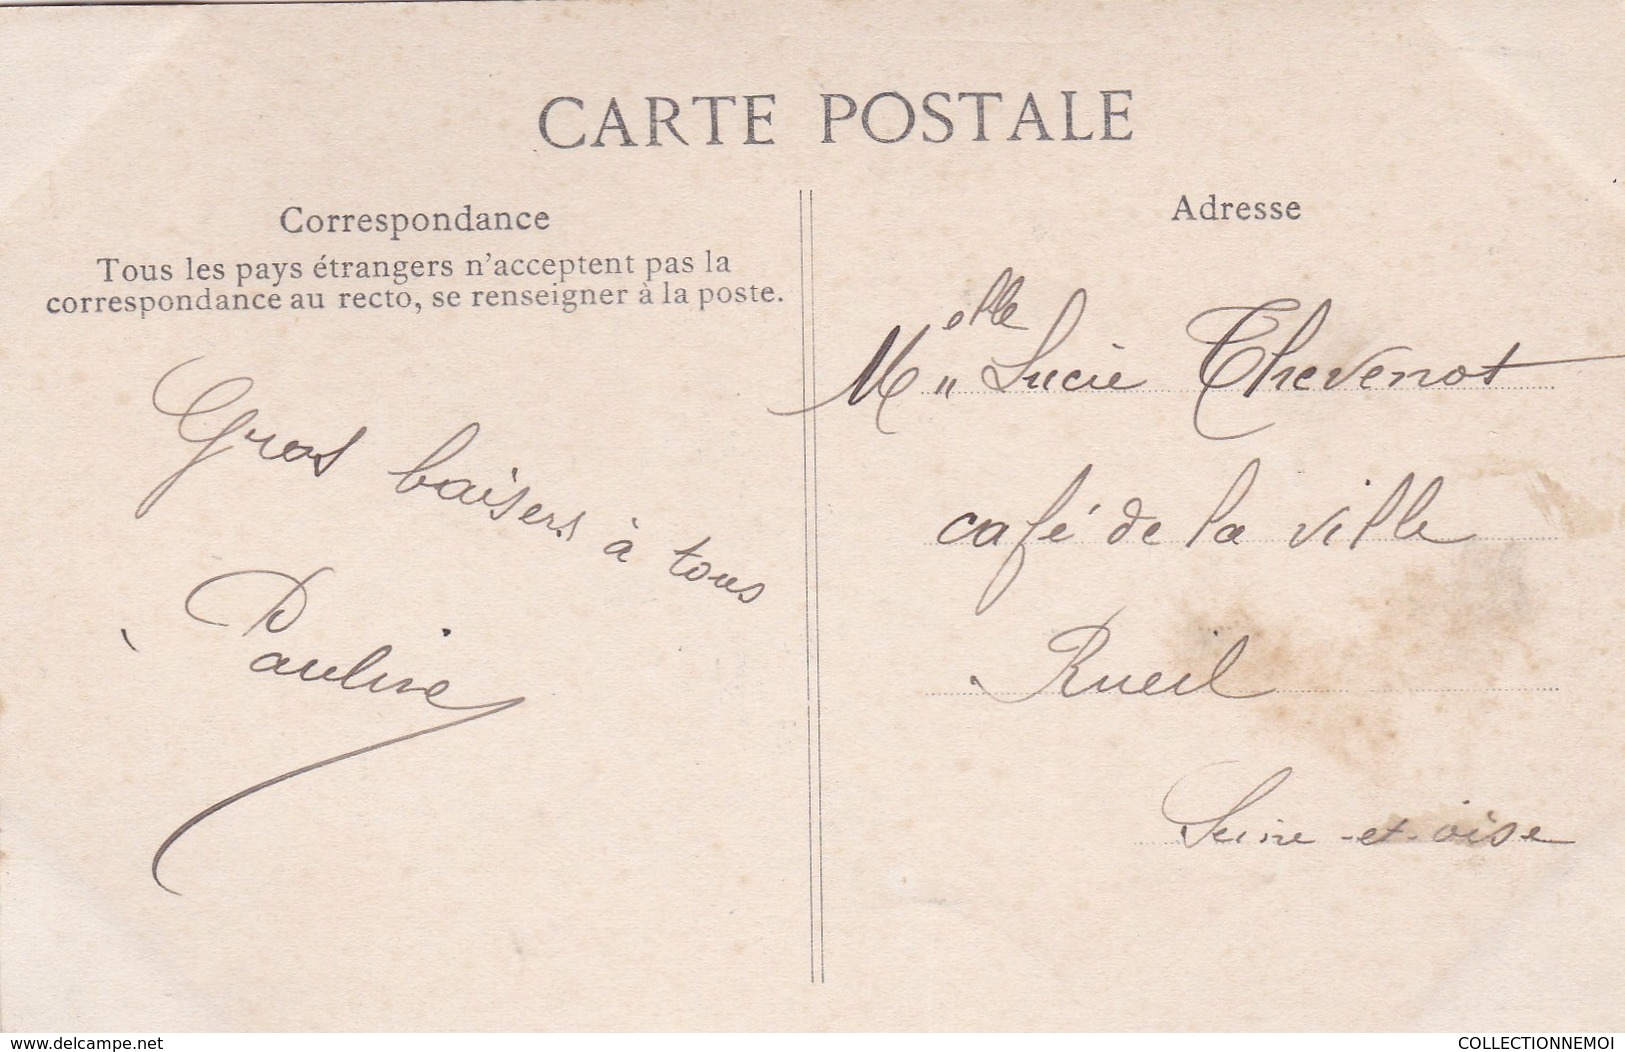 CARTE POSTALE
Correspondance
Tous les pays étrangers n'acceptent pas la
correspondance au recto, se renseigner à la poste.
Gros baisers à tous
Pauline
Adresse
Melle Lucie Thevenot
café de la ville
Rueil
Seine-et-oise
www.delcampe.net
COLLECTIONNEMOI